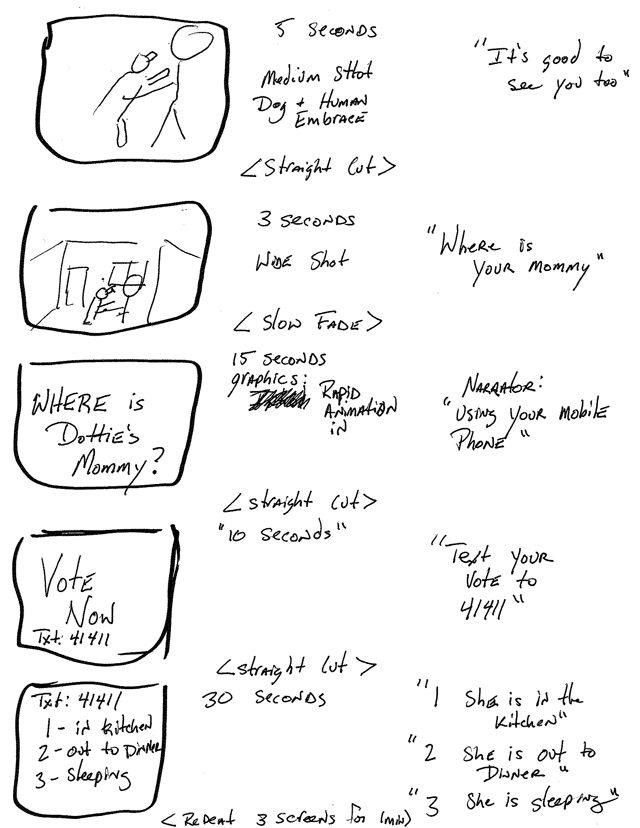 5 SECONDS
Medium SHOT
Dog + HUMAN
EMBRACE
"It's good to
see you too"
<Straight Cut>
3 SECONDS
WIDE Shot
"Where is
YOUR MOMMY"
<Slow FADE>
WHERE is
Dottie's
Mommy?
15 SECONDS
graphics:
RAPID
ANIMATION
IN
NARRATOR:
"Using YOUR Mobile
Phone"
<straight cut>
VOTE
Now
Txt: 41411
"10 Seconds"
"Text YOUR
VOTE to
41411"
<straight cut>
Txt: 41411
1 - in kitchen
2 - out to DINNER
3 - Sleeping
30 SECONDS
"1 SHE is in the
kitchen"
"2 SHE is out to
DINNER"
"3 She is sleeping"
<REPEAT 3 screens for 1min>